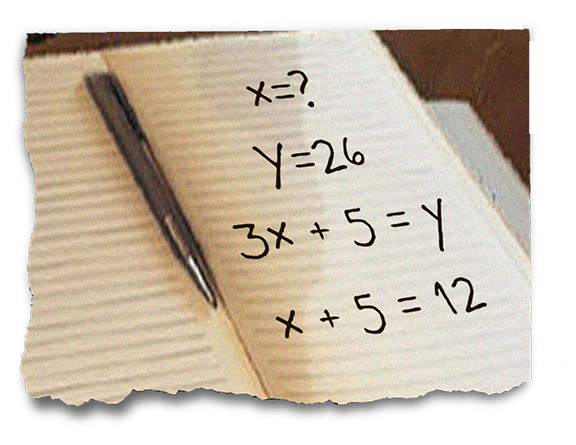 x=?
y=26
3x + 5 = y
x + 5 = 12